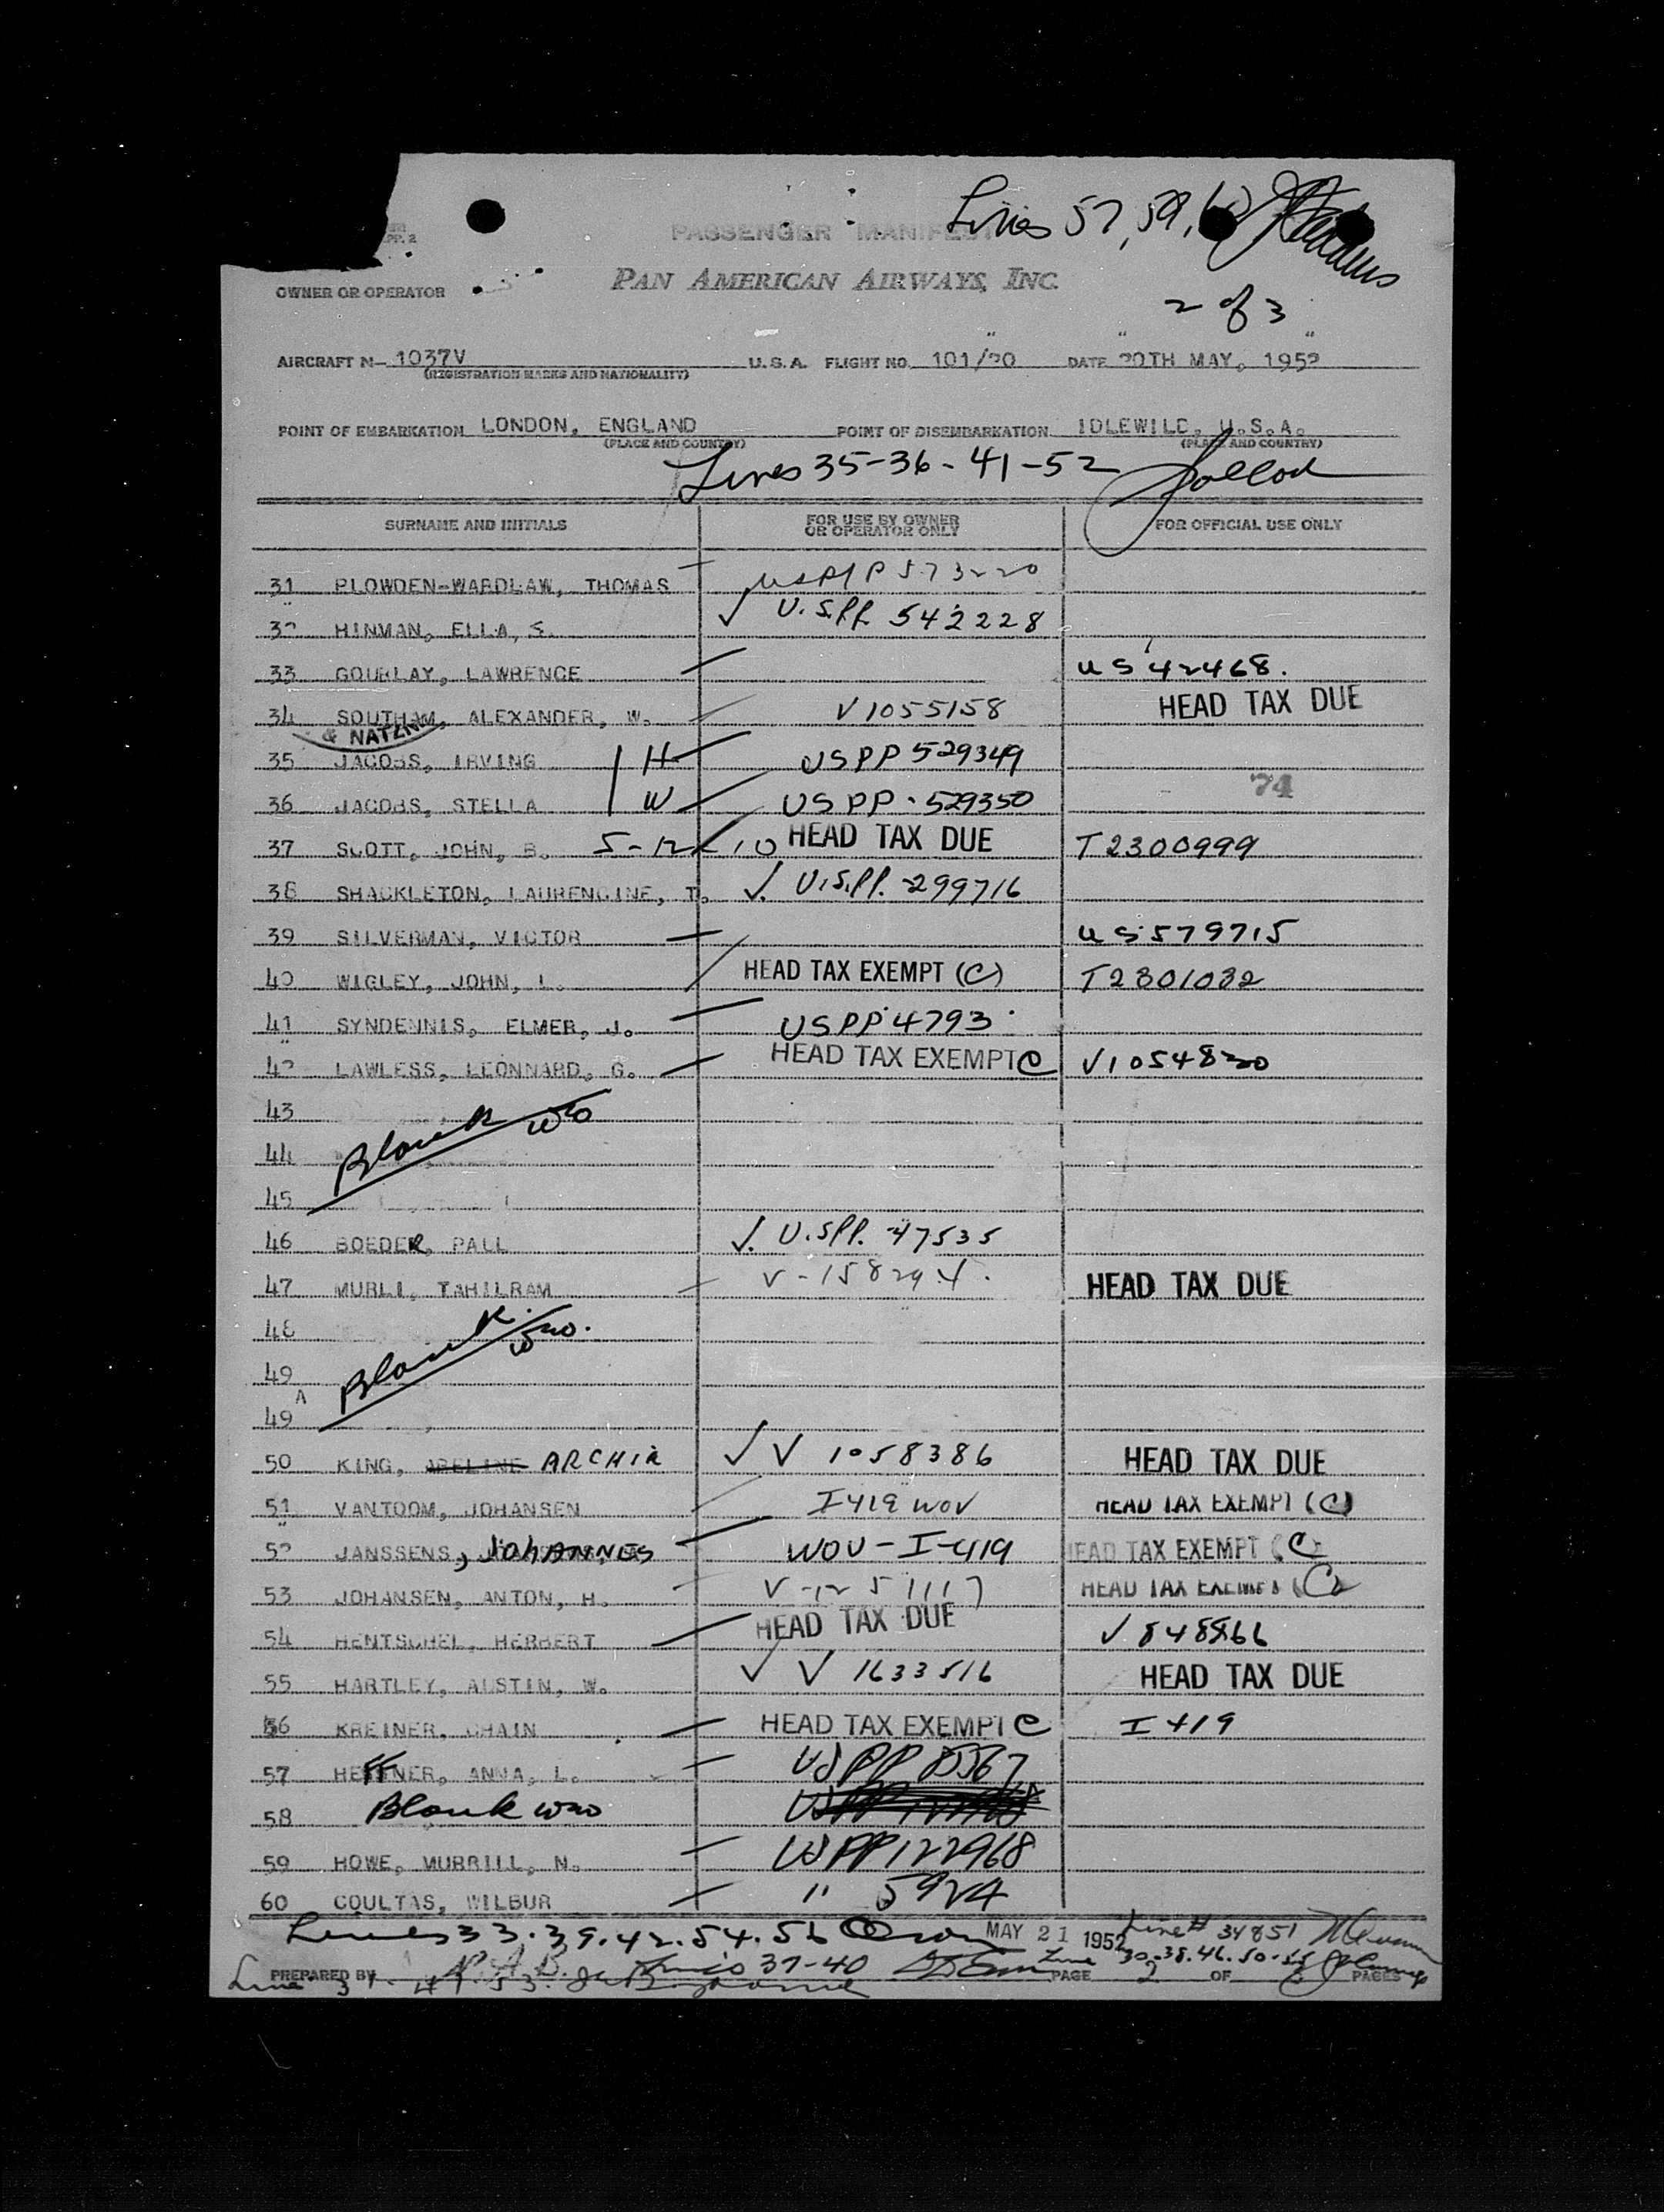 Lines 57, 59, 60
PASSENGER MANIFEST
PAN AMERICAN AIRWAYS, INC.
OWNER OR OPERATOR
2 of 3
AIRCRAFT N- 1037V U.S.A. FLIGHT NO. 101/20 DATE 20TH MAY, 1952
(REGISTRATION MARKS AND NATIONALITY)
POINT OF EMBARKATION LONDON, ENGLAND POINT OF DISEMBARKATION IDLEWILD, U.S.A.
(PLACE AND COUNTRY) (PLACE AND COUNTRY)
Lines 35-36-41-52
SURNAME AND INITIALS FOR USE BY OWNER OR OPERATOR ONLY FOR OFFICIAL USE ONLY
31 PLOWDEN-WARDLAW, THOMAS USPP 573220
32 HINMAN, ELLA, S. ✓ U.S.PP. 542228
33 GOURLAY, LAWRENCE US 42468.
34 SOUTHAM, ALEXANDER, W. V1055158 HEAD TAX DUE
& NATZN
35 JACOBS, IRVING H USPP 529349
36 JACOBS, STELLA W USPP. 529350 74
37 SCOTT, JOHN, B. 5-12 10 HEAD TAX DUE T2300999
38 SHACKLETON, LAURENCINE, T. ✓. U.S.PP. 299716
39 SILVERMAN, VICTOR US 579715
40 WIGLEY, JOHN, L. HEAD TAX EXEMPT (C) T2301032
41 SYNDENNIS, ELMER, J. USPP 4793
42 LAWLESS, LEONNARD, G. HEAD TAX EXEMPT C V1054820
43
44 Blank
45
46 BOEDER, PAUL ✓. U.S.PP. 47535
47 MURLI, TAHILRAM V-158294. HEAD TAX DUE
48
49 Blank
49 A
50 KING, ARCHIE ✓ V 1058386 HEAD TAX DUE
51 VANTOOM, JOHANSEN I419 WOV HEAD TAX EXEMPT (C)
52 JANSSENS, JOHANNES WOV-I-419 HEAD TAX EXEMPT (C)
53 JOHANSEN, ANTON, H. V-1251117 HEAD TAX EXEMPT (C)
54 HENTSCHEL, HERBERT HEAD TAX DUE
55 HARTLEY, AUSTIN, W. ✓ V 1633516 HEAD TAX DUE
56 KREINER, CHAIN HEAD TAX EXEMPT C I 419
57 HEFFNER, ANNA, L. USPP 85567
58 Blank
59 HOWE, MURRILL, N. USPP 122968
60 COULTAS, WILBUR " 5924
Lines 33.39.42.54.56 MAY 21 1952 Line# 34851
Lines 37-40 Line 30-38.46.50.55
PREPARED BY P.A.B. PAGE 2 OF PAGES